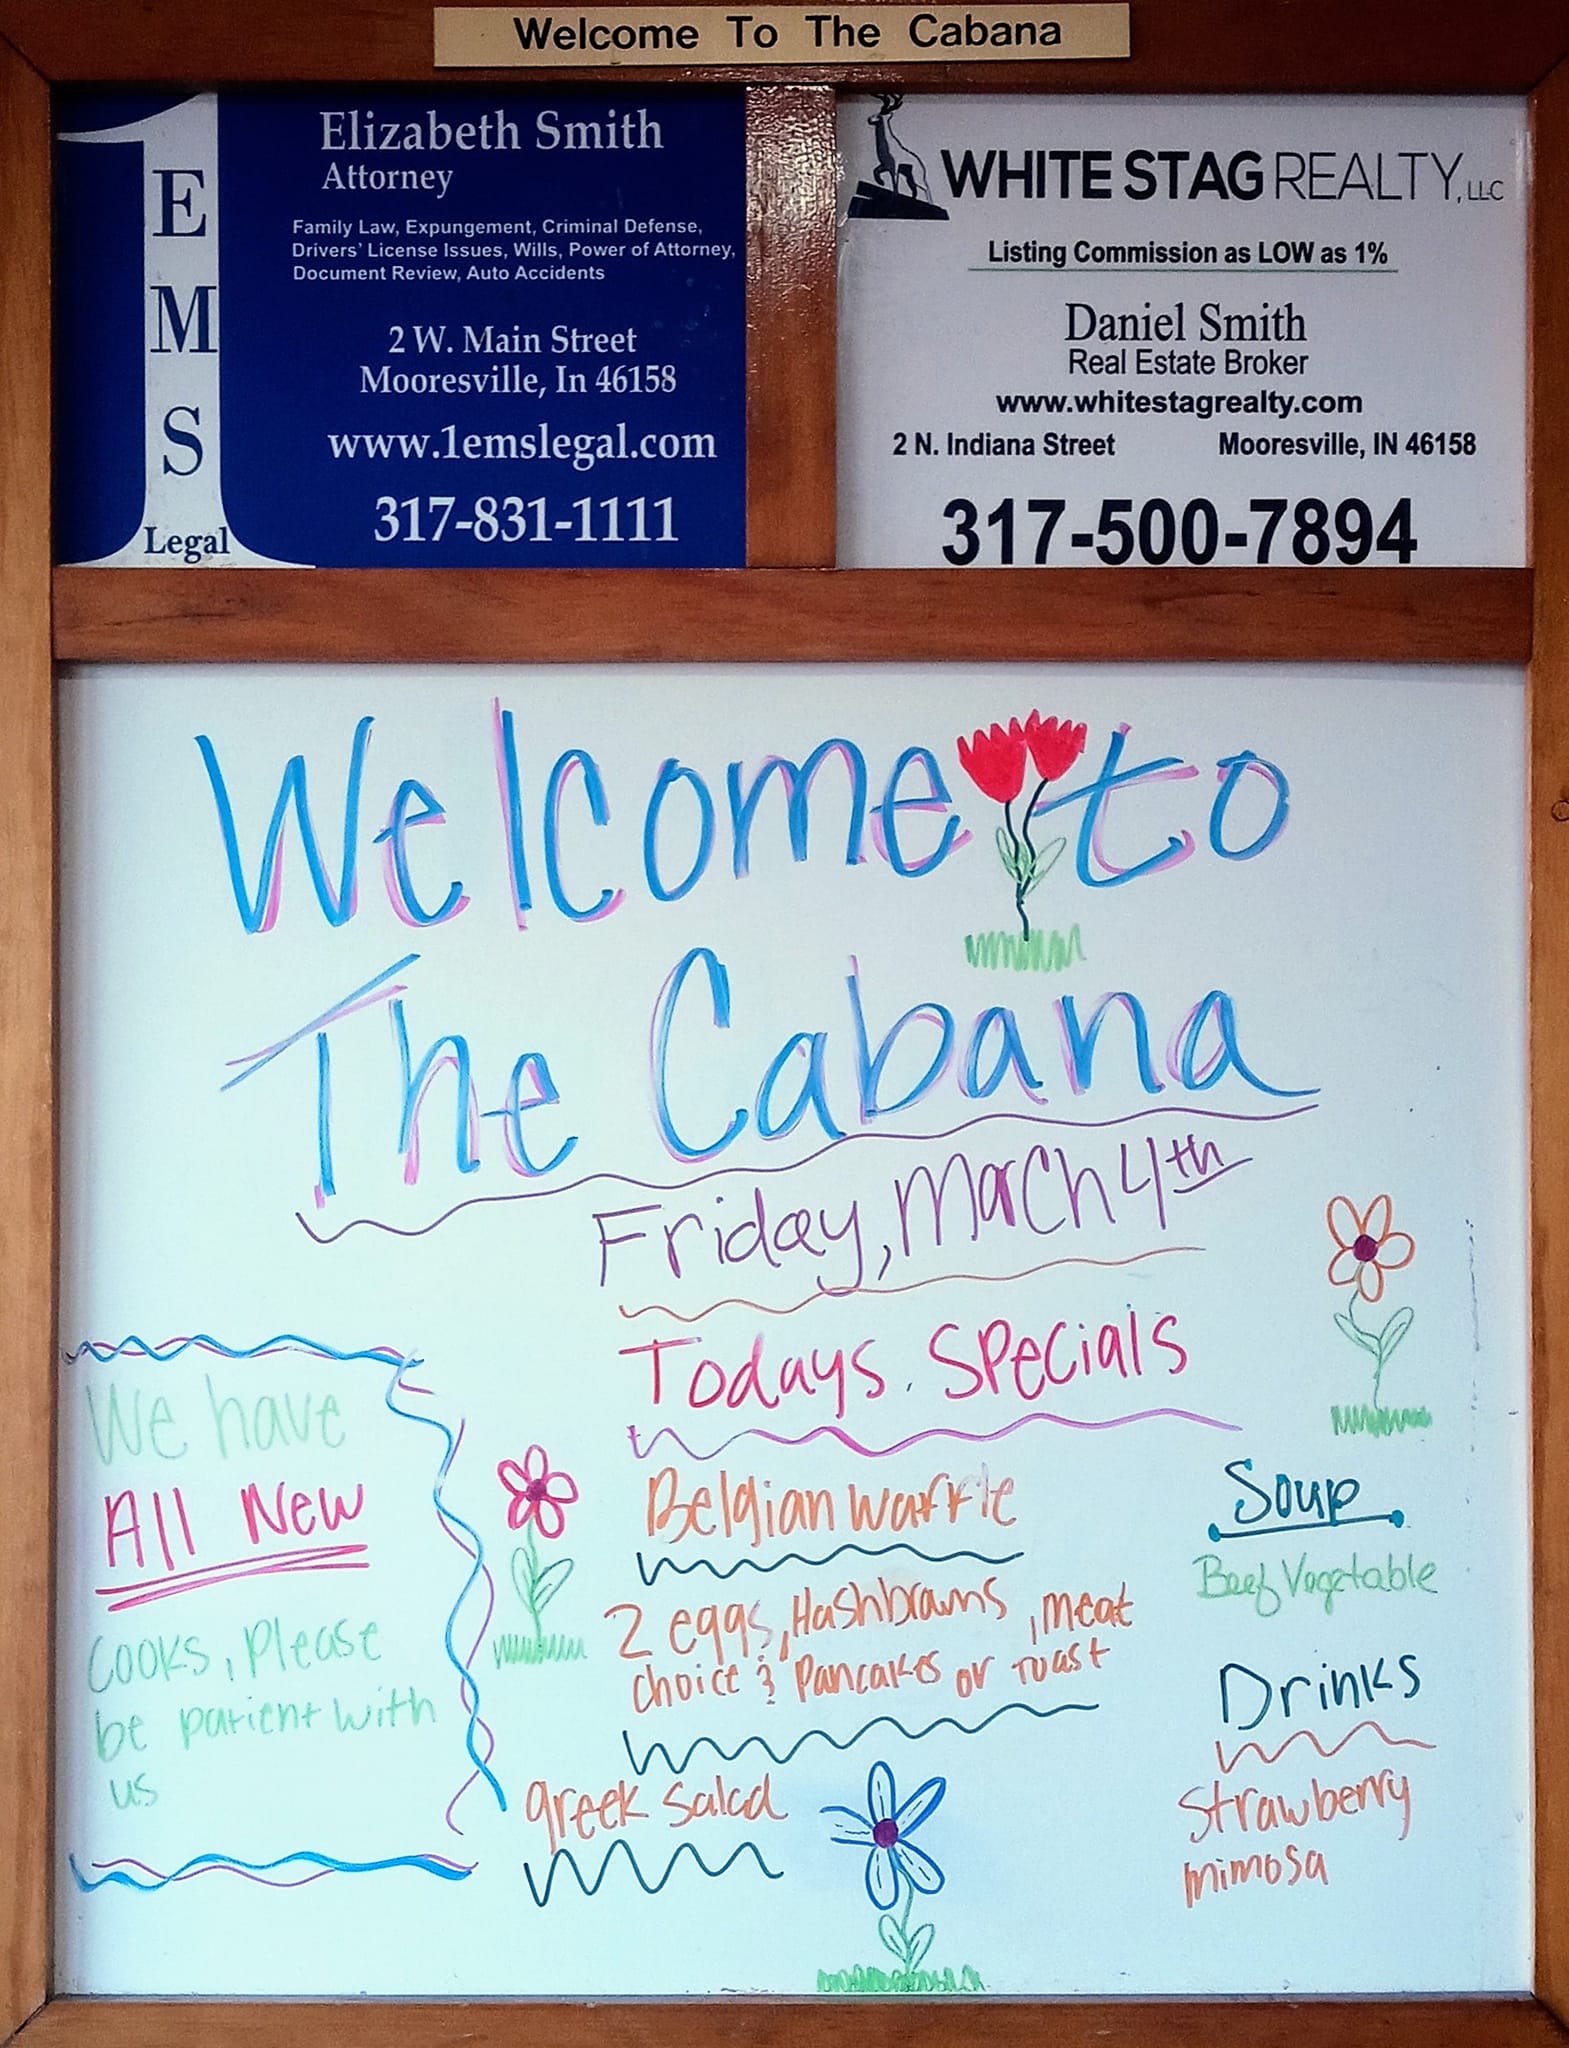 Welcome To The Cabana
1
EMS
Legal
Elizabeth Smith
Attorney
Family Law, Expungement, Criminal Defense,
Drivers' License Issues, Wills, Power of Attorney,
Document Review, Auto Accidents
2 W. Main Street
Mooresville, In 46158
www.1emslegal.com
317-831-1111
WHITE STAG REALTY, LLC
Listing Commission as LOW as 1%
Daniel Smith
Real Estate Broker
www.whitestagrealty.com
2 N. Indiana Street Mooresville, IN 46158
317-500-7894
Welcome to
The Cabana
Friday, March 4th
Todays Specials
We have
All New
Cooks, Please
be patient with
us
Belgian Waffle
2 eggs, Hashbrowns, meat
choice & Pancakes or Toast
Greek Salad
Soup
Beef Vegetable
Drinks
Strawberry
mimosa